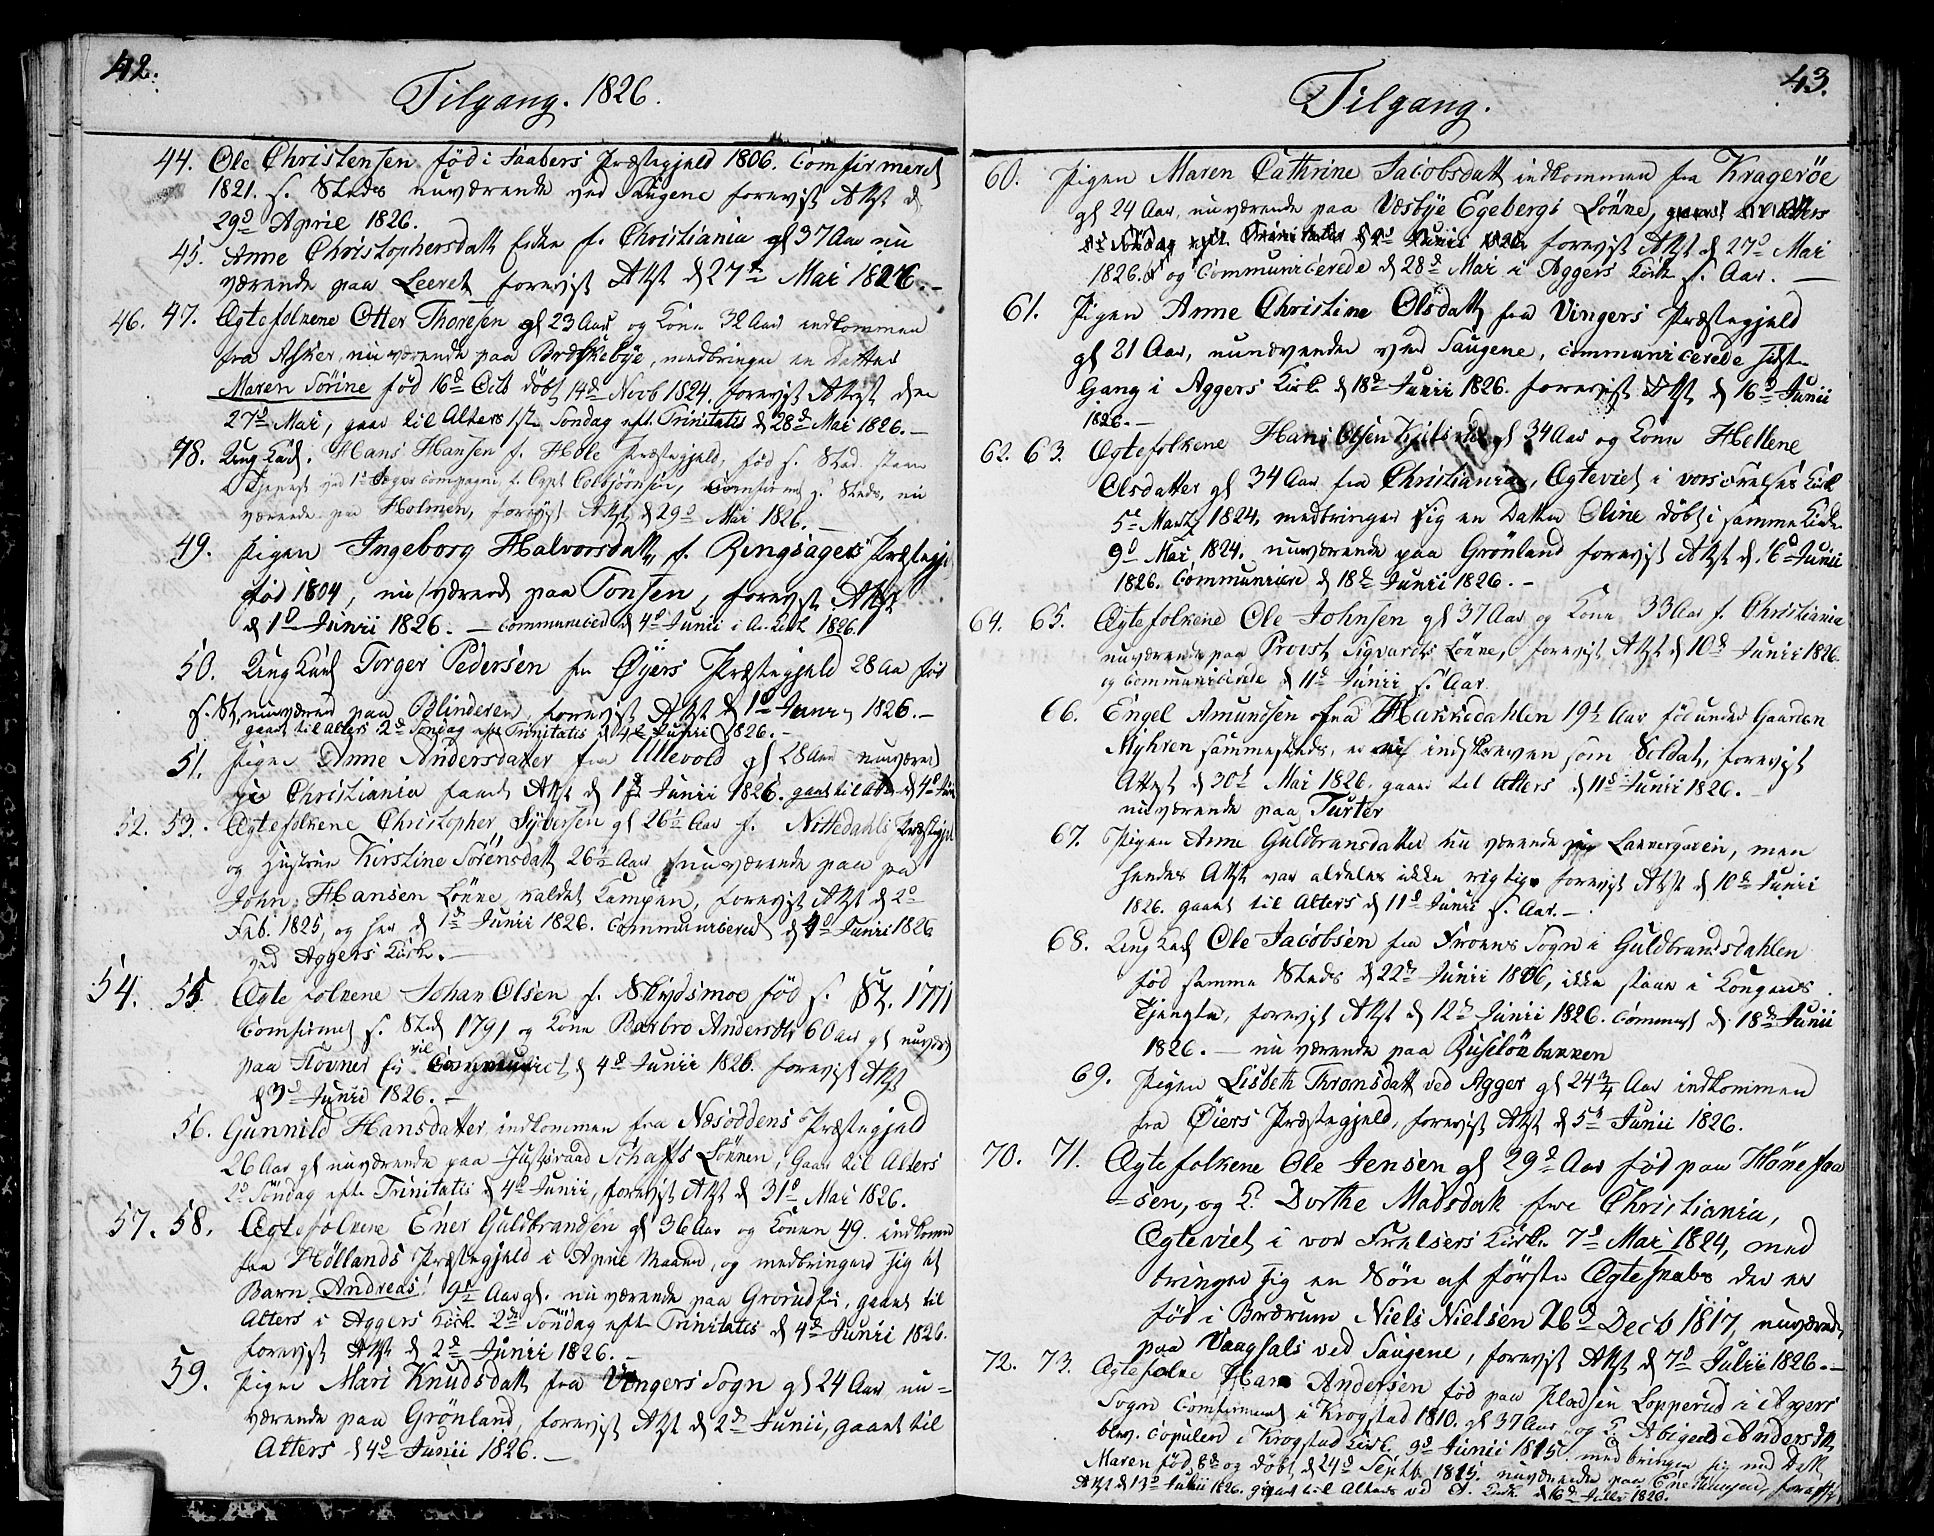 42.
Tilgang. 1826.
44. Ole Christensen fød i Præstegjeld 1806. Comfirmered
1821. s. Steds nuværende ved Saugene forevist Attst d
29d April 1826.
45. Anne Christophersdatt f. Christiania gl 37 Aar nu
værende paa Leeret forevist Attst d 27d Mai 1826. –
46. 47. Ægtefolkene Otter Thoresen gl 23 Aar og Kone 32 Aar indkommen
fra Asker, nuværende paa Brødskebye, medbringer en Datter
Maren Sørine fød 16d Octb døbt 14d Novb 1824, forevist Attest den
27d Mai, gaar til Alters 1ste Søndag eft. Trinitatis d 28d Mai 1826. –
48. Ung Karl. Hans Hansen f. Hole Præstegjeld, fød s. Sted.
compagni f. Capt Colbjørnsen, Comfirmet s. Steds, nu
værende paa Holmen, forevist Attst d 29d Mai 1826. –
49. Pigen Ingeborg Halvorsdatt f. Ringsagers Præstegj
fød 1804, nuværende paa Tonsen, forevist Attst
d 1d Junii 1826. – Communicered d 4d Junii i A. Kirk 1826.
50. Ung Karl Torger Pedersen fra Øyers Præstegjeld 28 Aar fød
s. St, nuværend paa Blinderen forevist Attst d 1d Junii 1826. –
gaaet til alters 2d Søndag eft Trinitatis d 4d Junii 1826. –
51. Pigen Anne Andersdatter fra Ullevold gl 28 Aar nuværend
paa Christiania Attst d 1d Junii 1826. gaaet til Alters d 4d Juni
52. 53. Ægtefolkene Christopher Syversen gl 26½ Aar f. Nittedahls Præstegjel
og Hustrue Kirstine Sørensdatt 26½ Aar nuværende paa
John Hansen Lønne, kaldet Kampen, forevist Attst d 2d
Feb. 1825, og her d 1d Junii 1826. Communicered d 4d Junii 1826
ved Aggers Kirk. –
54. 55. Ægtefolkene Johan Olsen f. Skydsmoe fød s. St. 1771
Comfirmet s. Sted 1791 og Kone Barbro Andersdtr 60 aar gl nuværd
paa Stovner Communicert d 4d Junii 1826. forevist Attst
d 3d Junii 1826. –
56. Gunnild Hansdatter, indkommen fra Næsoddens Præstegjeld
26 Aar gl nuværende paa Justsraad Schafts Lønnen, Gaar til Alters
2d Søndag eft. Trinitatis d 4d Junii, forevist Attst d 31d Mai 1826.
57. 58. Ægtefolkene Ener Guldbrandsen gl 36 Aar og Konen 49. indkomm
fra Høllands Præstegjeld i April Maaned, og medbringer sig et
Barn Andreas! 9d Aar gl. nuværende paa Grorud, gaaet til
Alters i Aggers Kirk 2d Søndag eft. Trinitatis d 4d Junii 1826.
forevist Attst d 2d Junii 1826. –
59. Pigen Mari Knudsdatt fra Vingers Sogn gl 24 Aar nu=
værende paa Grønland, forevist Attst d 2d Junii, gaaet til
Alters d 4d Junii 1826. –
43.
Tilgang.
60. Pigen Maren Cathrine Jacobsdatt indkommen fra Kragerøe
gl 24 Aar, nuværende paa Væsbye Egebergs Lønne,
forevist Attst d 27d Mai
1826. og Communicerede d 28d Mai i Aggers Kirk s. Aar. –
61. Pigen Anne Christine Olsdatt fra Vingers Præstegjeld
gl 21 Aar, nunværende ved Saugene, communicerede sidst
Gang i Aggers Kirk d 18d Junii 1826. forevist Attst d 16d Junii
1826. –
62. 63. Ægtefolkene Hans Olsen gl 34 Aar og Kone Hellene
Olsdatter gl 34 Aar fra Christiania, Ægteviet i vors Frelsers Kirk
5d Marts 1824, medbringer sig en Datter Oline døbt i samme Kirke
9d Mai 1824. nuværende paa Grønland forevist Attst d. 16d Junii
1826. Communicere d 18d Junii 1826. –
64. 65. Ægtefolkene Ole Johnsen gl 37 Aar og Kone 33 Aar f. Christiania
nuværende paa Provst Sigvards Lønne, forevist Attst d 10d Junii 1826.
og Communicerede d 11d Junii s. Aar.
66. Engel Amundsen fra Hakkedahlen 19½ Aar fød under Gaarden
Myhren sammesteds, er indskreven som Soldat, forevist
Attest d 30d Mai 1826. gaaet til Alters d 11d Junii 1826. –
nuværende paa Turter
67. Pigen Anne Guldbransdatter nu værende paa Lakkergaden, men
hendes Attst var aldeles ikke rigtig forevist Attst d 10d Junii
1826. gaaet til Alters d 11d Junii s. Aar. –
68. Ung Karl Ole Jacobsen fra Froens Sogn i Guldbrandsdahlen
fød samme Steds d 22d Junii 1806, ikke staar i Kongens
Tjeneste, forevist Attst d 12d Junii 1826. Commust d 18d Junii
1826. – nu værende paa Ruseløkbakken
69. Pigen Lisbeth Thronsdatt ved Agger gl 24¾ Aar indkommen
fra Øiers Præstegjeld, forevist Attst d 5d Junii 1826.
70. 71. Ægtefolkene Ole Jensen gl 29d Aar fød paa Hønefos
=sen, og K. Dorthe Madsdatt fra Christiania,
Ægteviet i vor Frelsers Kirke 7d Mai 1824, med
bringer sig en Søn af første Ægteskabs der er
fød i Bærum Niels Nielsen 26d Decb 1817, nuværende
paa Vaaghals ved Saugene, forevist Attst d 7d Julii 1826. –
72. 73. Ægtefolke Hans Andersen fød paa Pladsen Lopperud i Aggers
Sogn Comfirmeret i Krogstad 1810. gl 37 Aar og K. Abigael Andersdtt
blev. Copuleret i Krogstad Kirk. 9d Junii 1815. medbringer sig med Datt
Maren fød 8d og døbt d 24d Septb 1815. nuværende paa forevist
Attst d 13d Julii 1826. gaaet til Alters ved A. Kirk. d 16d Julii 1826.